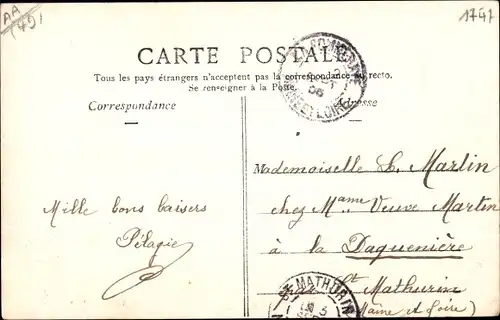 AA
(49)
1747
CARTE POSTALE
Tous les pays étrangers n'acceptent pas la correspondance au recto.
Se renseigner à la Poste.
Correspondance
Adresse
MAINE ET LOIRE
Mademoiselle L. Martin
chez Mame Veuve Martin
à la Daguenière
par St Mathurin
(Maine et Loire)
Mille bons baisers
Pélagie
ST MATHURIN